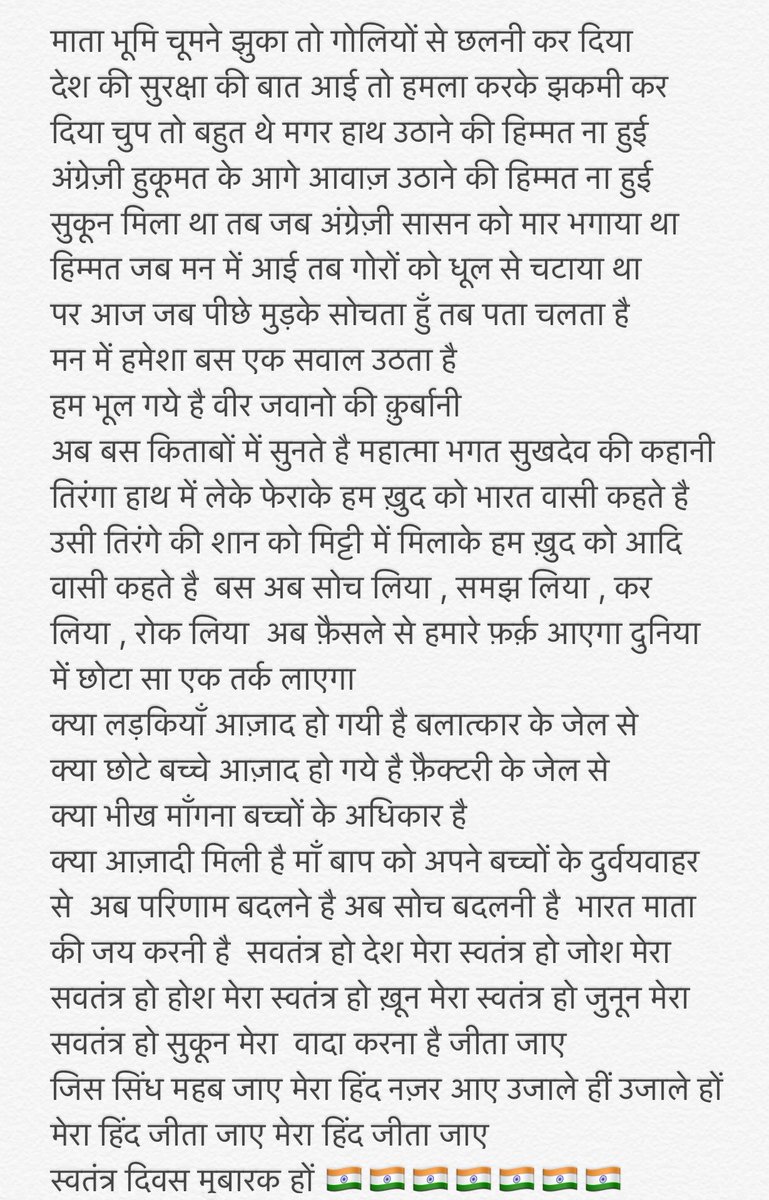 माता भूमि चूमने झुका तो गोलियों से छलनी कर दिया
देश की सुरक्षा की बात आई तो हमला करके झकमी कर
दिया चुप तो बहुत थे मगर हाथ उठाने की हिम्मत ना हुई
अंग्रेज़ी हुकूमत के आगे आवाज़ उठाने की हिम्मत ना हुई
सुकून मिला था तब जब अंग्रेज़ी सासन को मार भगाया था
हिम्मत जब मन में आई तब गोरों को धूल से चटाया था
पर आज जब पीछे मुड़के सोचता हुँ तब पता चलता है
मन में हमेशा बस एक सवाल उठता है
हम भूल गये है वीर जवानो की क़ुर्बानी
अब बस किताबों में सुनते है महात्मा भगत सुखदेव की कहानी
तिरंगा हाथ में लेके फेराके हम ख़ुद को भारत वासी कहते है
उसी तिरंगे की शान को मिट्टी में मिलाके हम ख़ुद को आदि
वासी कहते है  बस अब सोच लिया , समझ लिया , कर
लिया , रोक लिया  अब फ़ैसले से हमारे फ़र्क़ आएगा दुनिया
में छोटा सा एक तर्क लाएगा
क्या लड़कियाँ आज़ाद हो गयी है बलात्कार के जेल से
क्या छोटे बच्चे आज़ाद हो गये है फ़ैक्टरी के जेल से
क्या भीख माँगना बच्चों के अधिकार है
क्या आज़ादी मिली है माँ बाप को अपने बच्चों के दुर्वयवाहर
से  अब परिणाम बदलने है अब सोच बदलनी है  भारत माता
की जय करनी है  सवतंत्र हो देश मेरा स्वतंत्र हो जोश मेरा
सवतंत्र हो होश मेरा स्वतंत्र हो ख़ून मेरा स्वतंत्र हो जुनून मेरा
सवतंत्र हो सुकून मेरा  वादा करना है जीता जाए
जिस सिंध महब जाए मेरा हिंद नज़र आए उजाले हीं उजाले हों
मेरा हिंद जीता जाए मेरा हिंद जीता जाए
स्वतंत्र दिवस मुबारक हों 🇮🇳🇮🇳🇮🇳🇮🇳🇮🇳🇮🇳🇮🇳